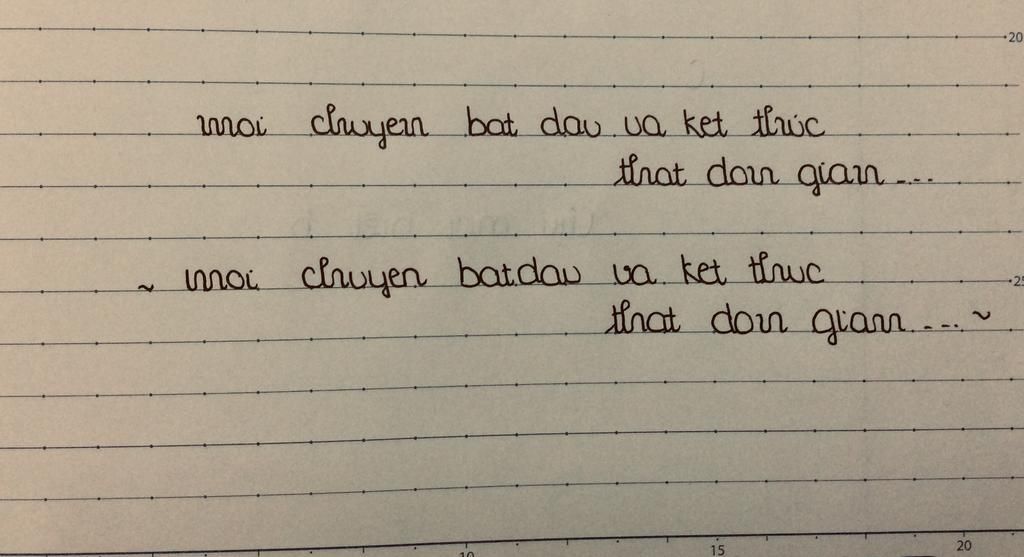 20
moi chuyen bat dau va ket thúc
that don gian ....
~ moi chuyen bat dau va ket thuc
25
that don gian .... ~
10 15 20